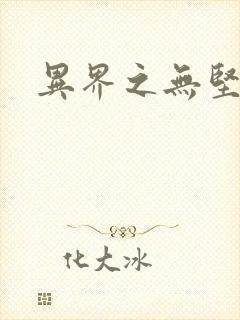 異界之無堅
化大冰